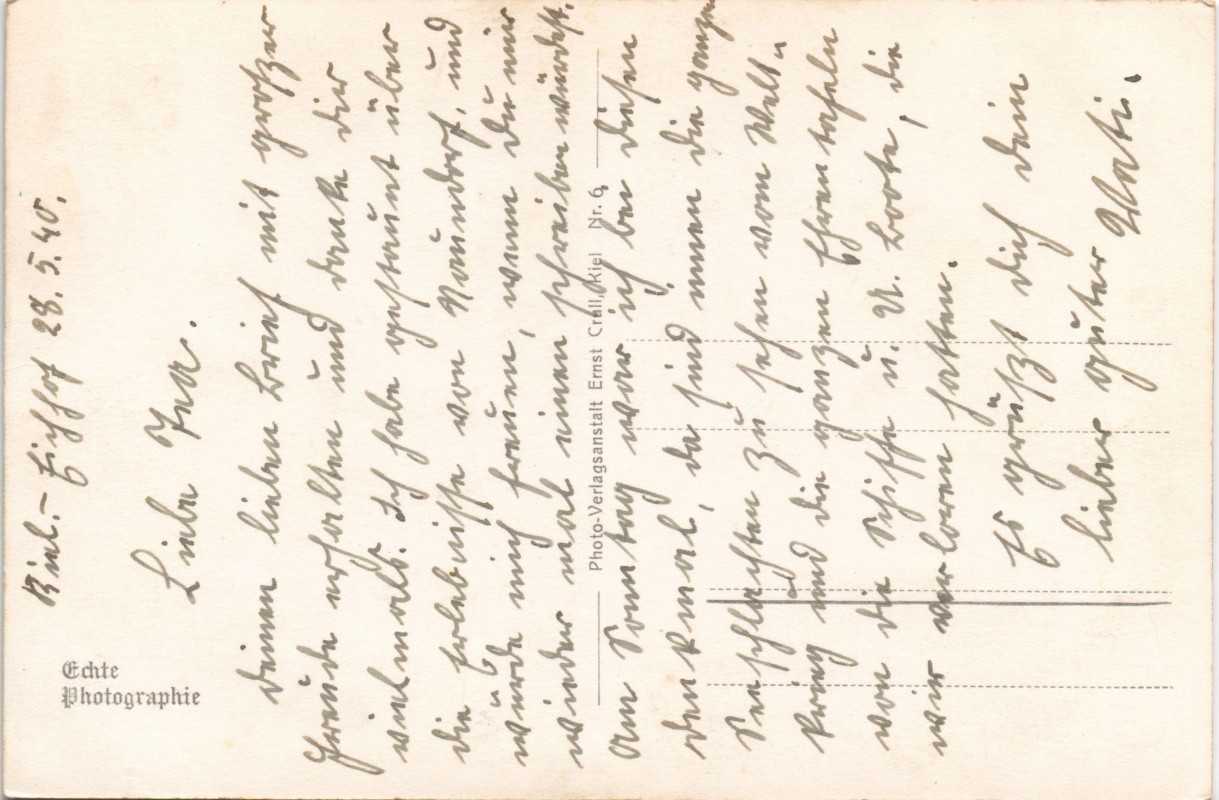 Kiel.-Eichhof 28.5.40.
Liebe Ina.
Deinen lieben Brief mit großer
Freude erhalten und danke dir
vielmals. Ich habe gestaunt über
die Erlebnisse von Naundorf, und
würde mich freuen, wenn Du mir
wieder mal einen schreiben würdest.
Am Sonntag war ich bei diesen
Denkmal, da sind innen die ganzen
Seeschlachten zu sehen vom Welt-
krieg und die ganzen Ehrentafeln
von die Schiffe u. U. Boote, die
wir verloren hatten.
Es grüßt dich dein
lieber guter Vati.
Echte
Photographie
Photo-Verlagsanstalt Ernst Crull, Kiel Nr. 6